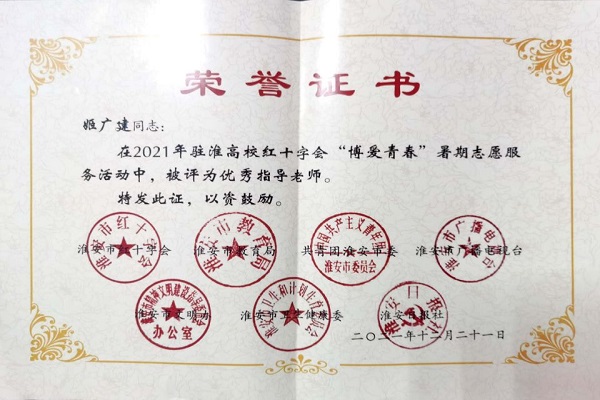 荣誉证书
姬广建同志：
在2021年驻淮高校红十字会“博爱青春”暑期志愿服
务活动中，被评为优秀指导老师。
特发此证，以资鼓励。
淮安市红十字会 淮安市教育局 共青团淮安市委 淮安市广播电视台
淮安市红十字会
淮安市教育局
中国共产主义青年团
淮安市委员会
淮安市广播电视台
淮安市文明办 淮安市卫生健康委 淮安日报社
办公室
淮安日报社
二〇二一年十二月二十一日